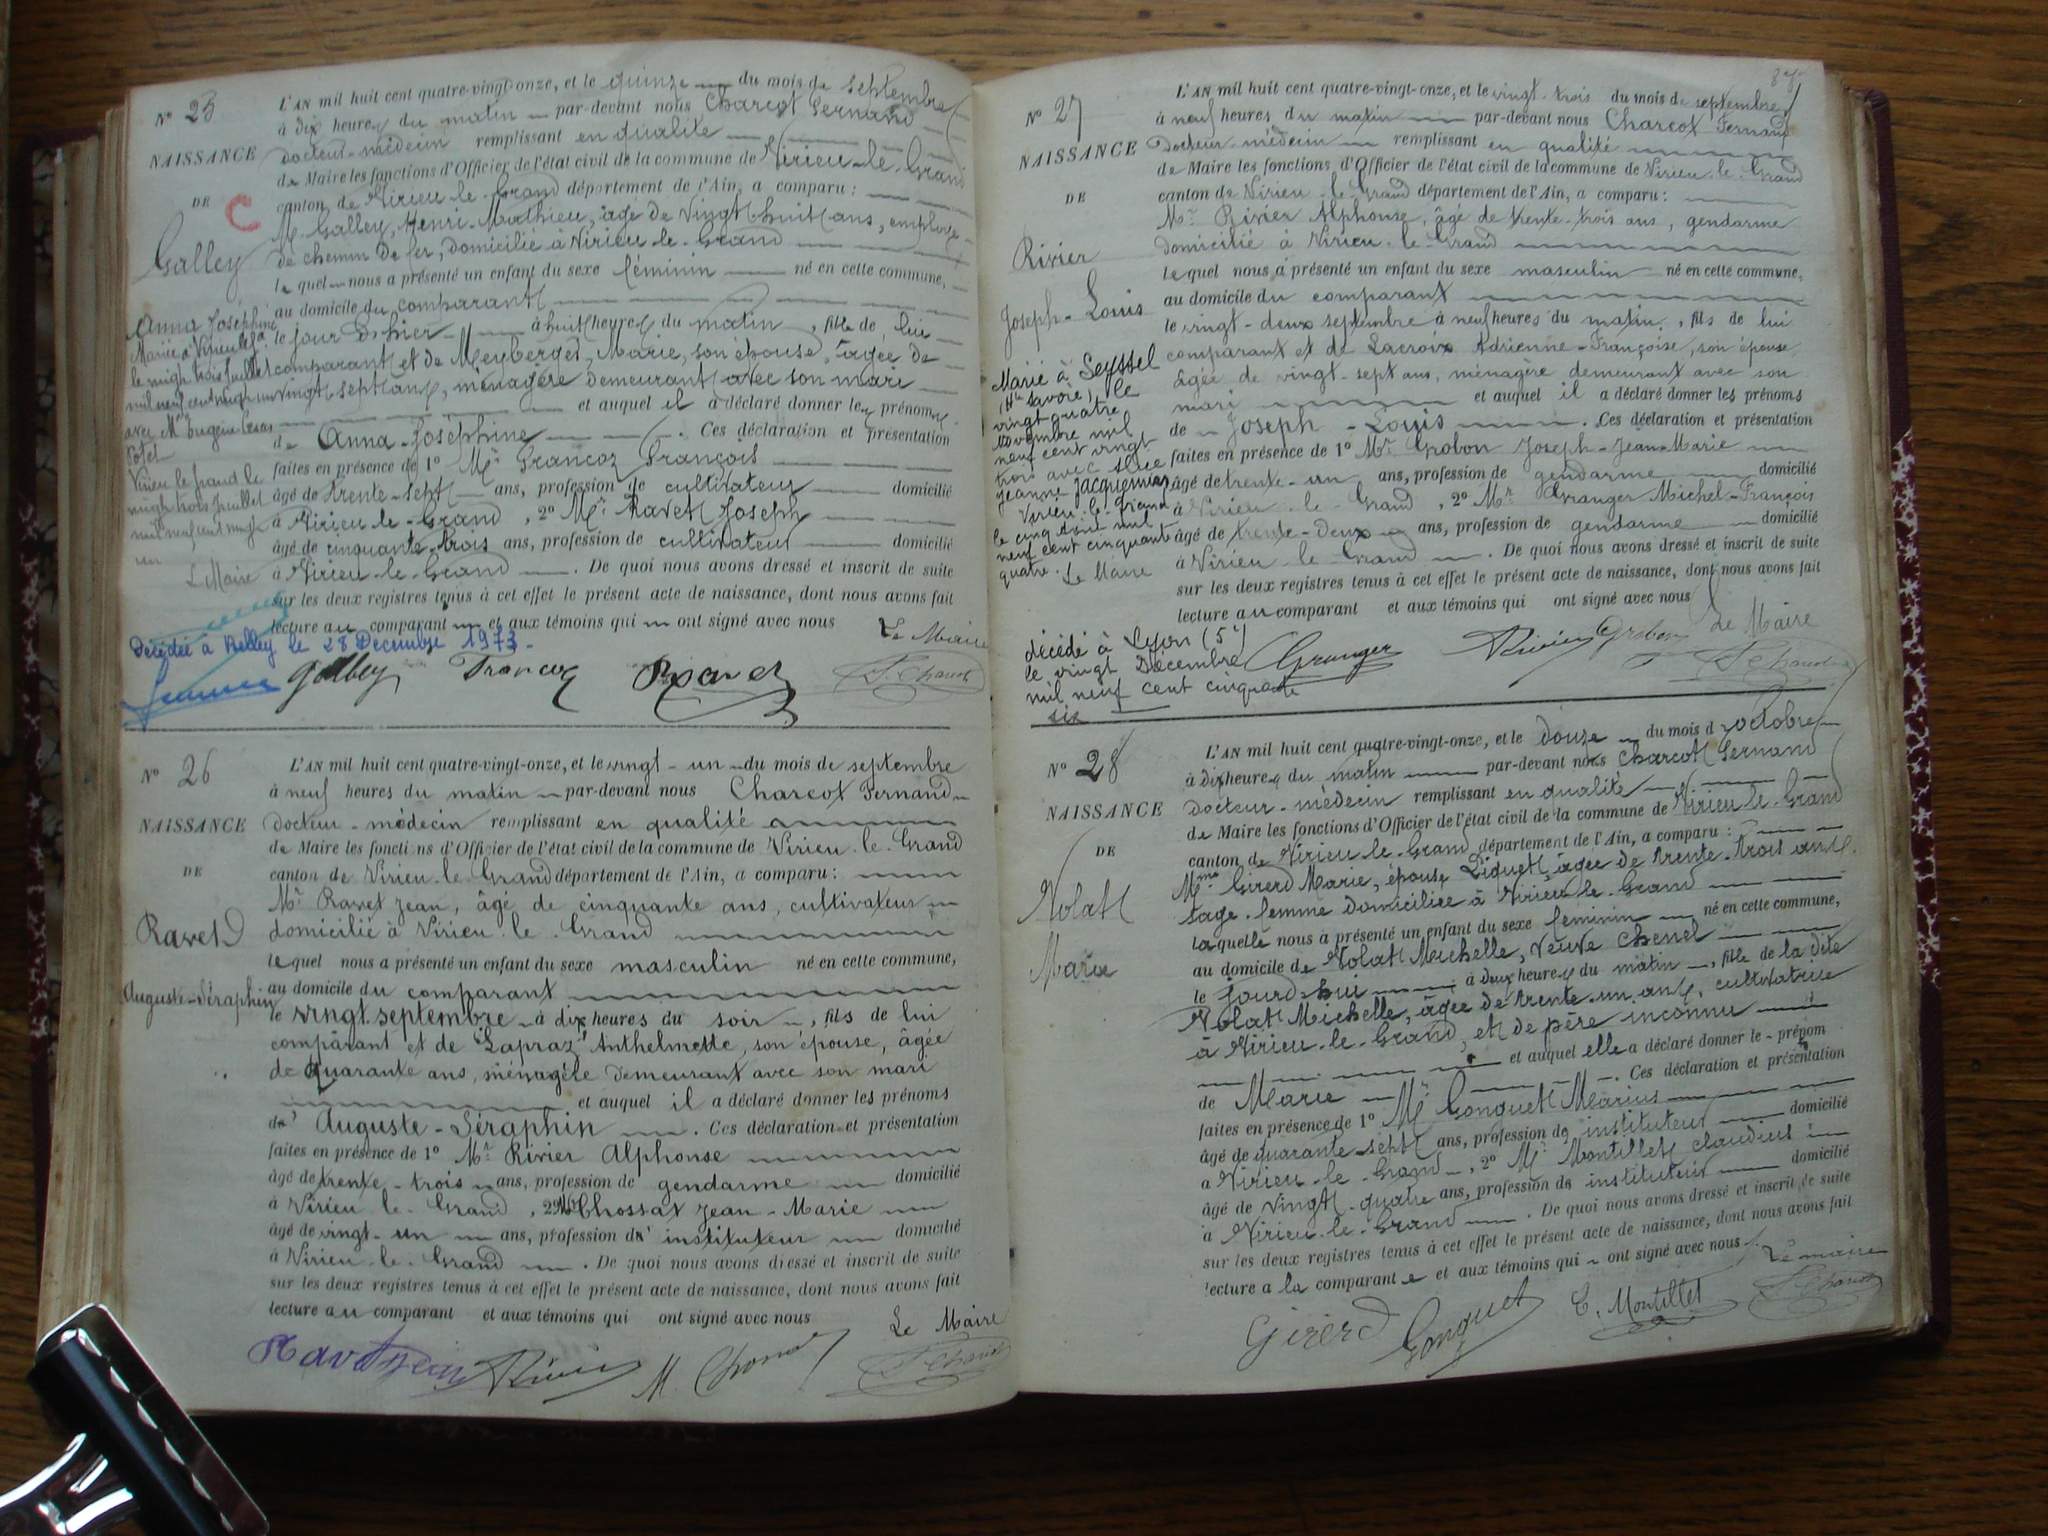 N° 25
NAISSANCE
DE
C
Galley
Anna Joséphine
Mariée à Virieu le Gd
le vingt trois juillet
mil neuf cent vingt un
avec Mr Eugène
Virieu le Grand le
vingt trois juillet
mil neuf cent vingt
un
Le Maire
L'AN mil huit cent quatre-vingt-onze, et le quinze du mois de septembre
à dix heures du matin par-devant nous Charcot Fernand
docteur-médecin remplissant en qualité
de Maire les fonctions d'Officier de l'état civil de la commune de Virieu-le-Grand
canton de Virieu-le-Grand département de l'Ain, a comparu :
M. Galley, Henri-Mathieu, âgé de vingt huit ans, employé
de chemin de fer, domicilié à Virieu-le-Grand
lequel nous a présenté un enfant du sexe féminin né en cette commune,
au domicile du comparant
le jour d'hier à huit heures du matin, fille de lui
comparant et de Meyberger, Marie, son épouse, âgée de
vingt sept ans, ménagère demeurant avec son mari
et auquel il a déclaré donner les prénoms
de Anna-Joséphine. Ces déclaration et présentation
faites en présence de 1° Mr Francoz François
âgé de trente-sept ans, profession de cultivateur domicilié
à Virieu-le-Grand, 2° Mr Ravet Joseph
âgé de cinquante-trois ans, profession de cultivateur domicilié
à Virieu-le-Grand. De quoi nous avons dressé et inscrit de suite
sur les deux registres tenus à cet effet le présent acte de naissance, dont nous avons fait
lecture au comparant et aux témoins qui ont signé avec nous
Le Maire
Décédée à Belley le 28 Décembre 1973.
Galley Francoz Ravet F. Charcot
N° 26
NAISSANCE
DE
Ravet
Auguste-Séraphin
L'AN mil huit cent quatre-vingt-onze, et le vingt-un du mois de septembre
à neuf heures du matin par-devant nous Charcot Fernand
docteur-médecin remplissant en qualité
de Maire les fonctions d'Officier de l'état civil de la commune de Virieu-le-Grand
canton de Virieu-le-Grand département de l'Ain, a comparu :
Mr Ravet Jean, âgé de cinquante ans, cultivateur
domicilié à Virieu-le-Grand
lequel nous a présenté un enfant du sexe masculin né en cette commune,
au domicile du comparant
le vingt septembre à dix heures du soir, fils de lui
comparant et de Lapraz Anthelmette, son épouse, âgée
de quarante ans, ménagère demeurant avec son mari
et auquel il a déclaré donner les prénoms
d' Auguste-Séraphin. Ces déclaration et présentation
faites en présence de 1° Mr Rivier Alphonse
âgé de trente-trois ans, profession de gendarme domicilié
à Virieu-le-Grand, 2° Mr Chossat Jean-Marie
âgé de vingt-un ans, profession d' instituteur domicilié
à Virieu-le-Grand. De quoi nous avons dressé et inscrit de suite
sur les deux registres tenus à cet effet le présent acte de naissance, dont nous avons fait
lecture au comparant et aux témoins qui ont signé avec nous
Le Maire
Ravet Jean Rivier M. Chossat F. Charcot
N° 27
NAISSANCE
DE
Rivier
Joseph-Louis
Marié à Seyssel
(Hte Savoie) le
vingt quatre
novembre mil
neuf cent vingt
trois avec
Jeanne Jacquemier
Virieu-le-Grand
le cinq août mil
neuf cent cinquante
quatre. Le Maire
L'AN mil huit cent quatre-vingt-onze, et le vingt-trois du mois de septembre
à neuf heures du matin par-devant nous Charcot Fernand
Docteur-médecin remplissant en qualité
de Maire les fonctions d'Officier de l'état civil de la commune de Virieu-le-Grand
canton de Virieu-le-Grand département de l'Ain, a comparu :
Mr Rivier Alphonse, âgé de trente-trois ans, gendarme
domicilié à Virieu-le-Grand
lequel nous a présenté un enfant du sexe masculin né en cette commune,
au domicile du comparant
le vingt-deux septembre à neuf heures du matin, fils de lui
comparant et de Lacroix Adrienne-Françoise, son épouse,
âgée de vingt-sept ans, ménagère demeurant avec son
mari et auquel il a déclaré donner les prénoms
de Joseph-Louis. Ces déclaration et présentation
faites en présence de 1° Mr Grobon Joseph-Jean-Marie
âgé de trente-un ans, profession de gendarme domicilié
à Virieu-le-Grand, 2° Mr Granger Michel-François
âgé de trente-deux ans, profession de gendarme domicilié
à Virieu-le-Grand. De quoi nous avons dressé et inscrit de suite
sur les deux registres tenus à cet effet le présent acte de naissance, dont nous avons fait
lecture au comparant et aux témoins qui ont signé avec nous
Le Maire
décédé à Lyon (5e)
le vingt Décembre
mil neuf cent cinquante
six
Granger Rivier Grobon F. Charcot
N° 28
NAISSANCE
DE
Volat
Marie
L'AN mil huit cent quatre-vingt-onze, et le douze du mois d'octobre
à dix heures du matin par-devant nous Charcot Fernand
docteur-médecin remplissant en qualité
de Maire les fonctions d'Officier de l'état civil de la commune de Virieu-le-Grand
canton de Virieu-le-Grand département de l'Ain, a comparu :
Mme Girerd Marie, épouse Liquet, âgée de trente-trois ans,
sage-femme domiciliée à Virieu-le-Grand
laquelle nous a présenté un enfant du sexe féminin né en cette commune,
au domicile de Volat Michelle, veuve Chenel
le jourd'hui à deux heures du matin, fille de la dite
Volat Michelle, âgée de trente-un ans, cultivatrice
à Virieu-le-Grand, et de père inconnu
et auquel elle a déclaré donner le prénom
de Marie. Ces déclaration et présentation
faites en présence de 1° Mr Gonguet Marius
âgé de quarante-sept ans, profession de instituteur domicilié
à Virieu-le-Grand, 2° Mr Montillet Claudius
âgé de vingt-quatre ans, profession de instituteur domicilié
à Virieu-le-Grand. De quoi nous avons dressé et inscrit de suite
sur les deux registres tenus à cet effet le présent acte de naissance, dont nous avons fait
lecture a la comparante et aux témoins qui ont signé avec nous
Le maire
Girerd Gonguet C. Montillet F. Charcot